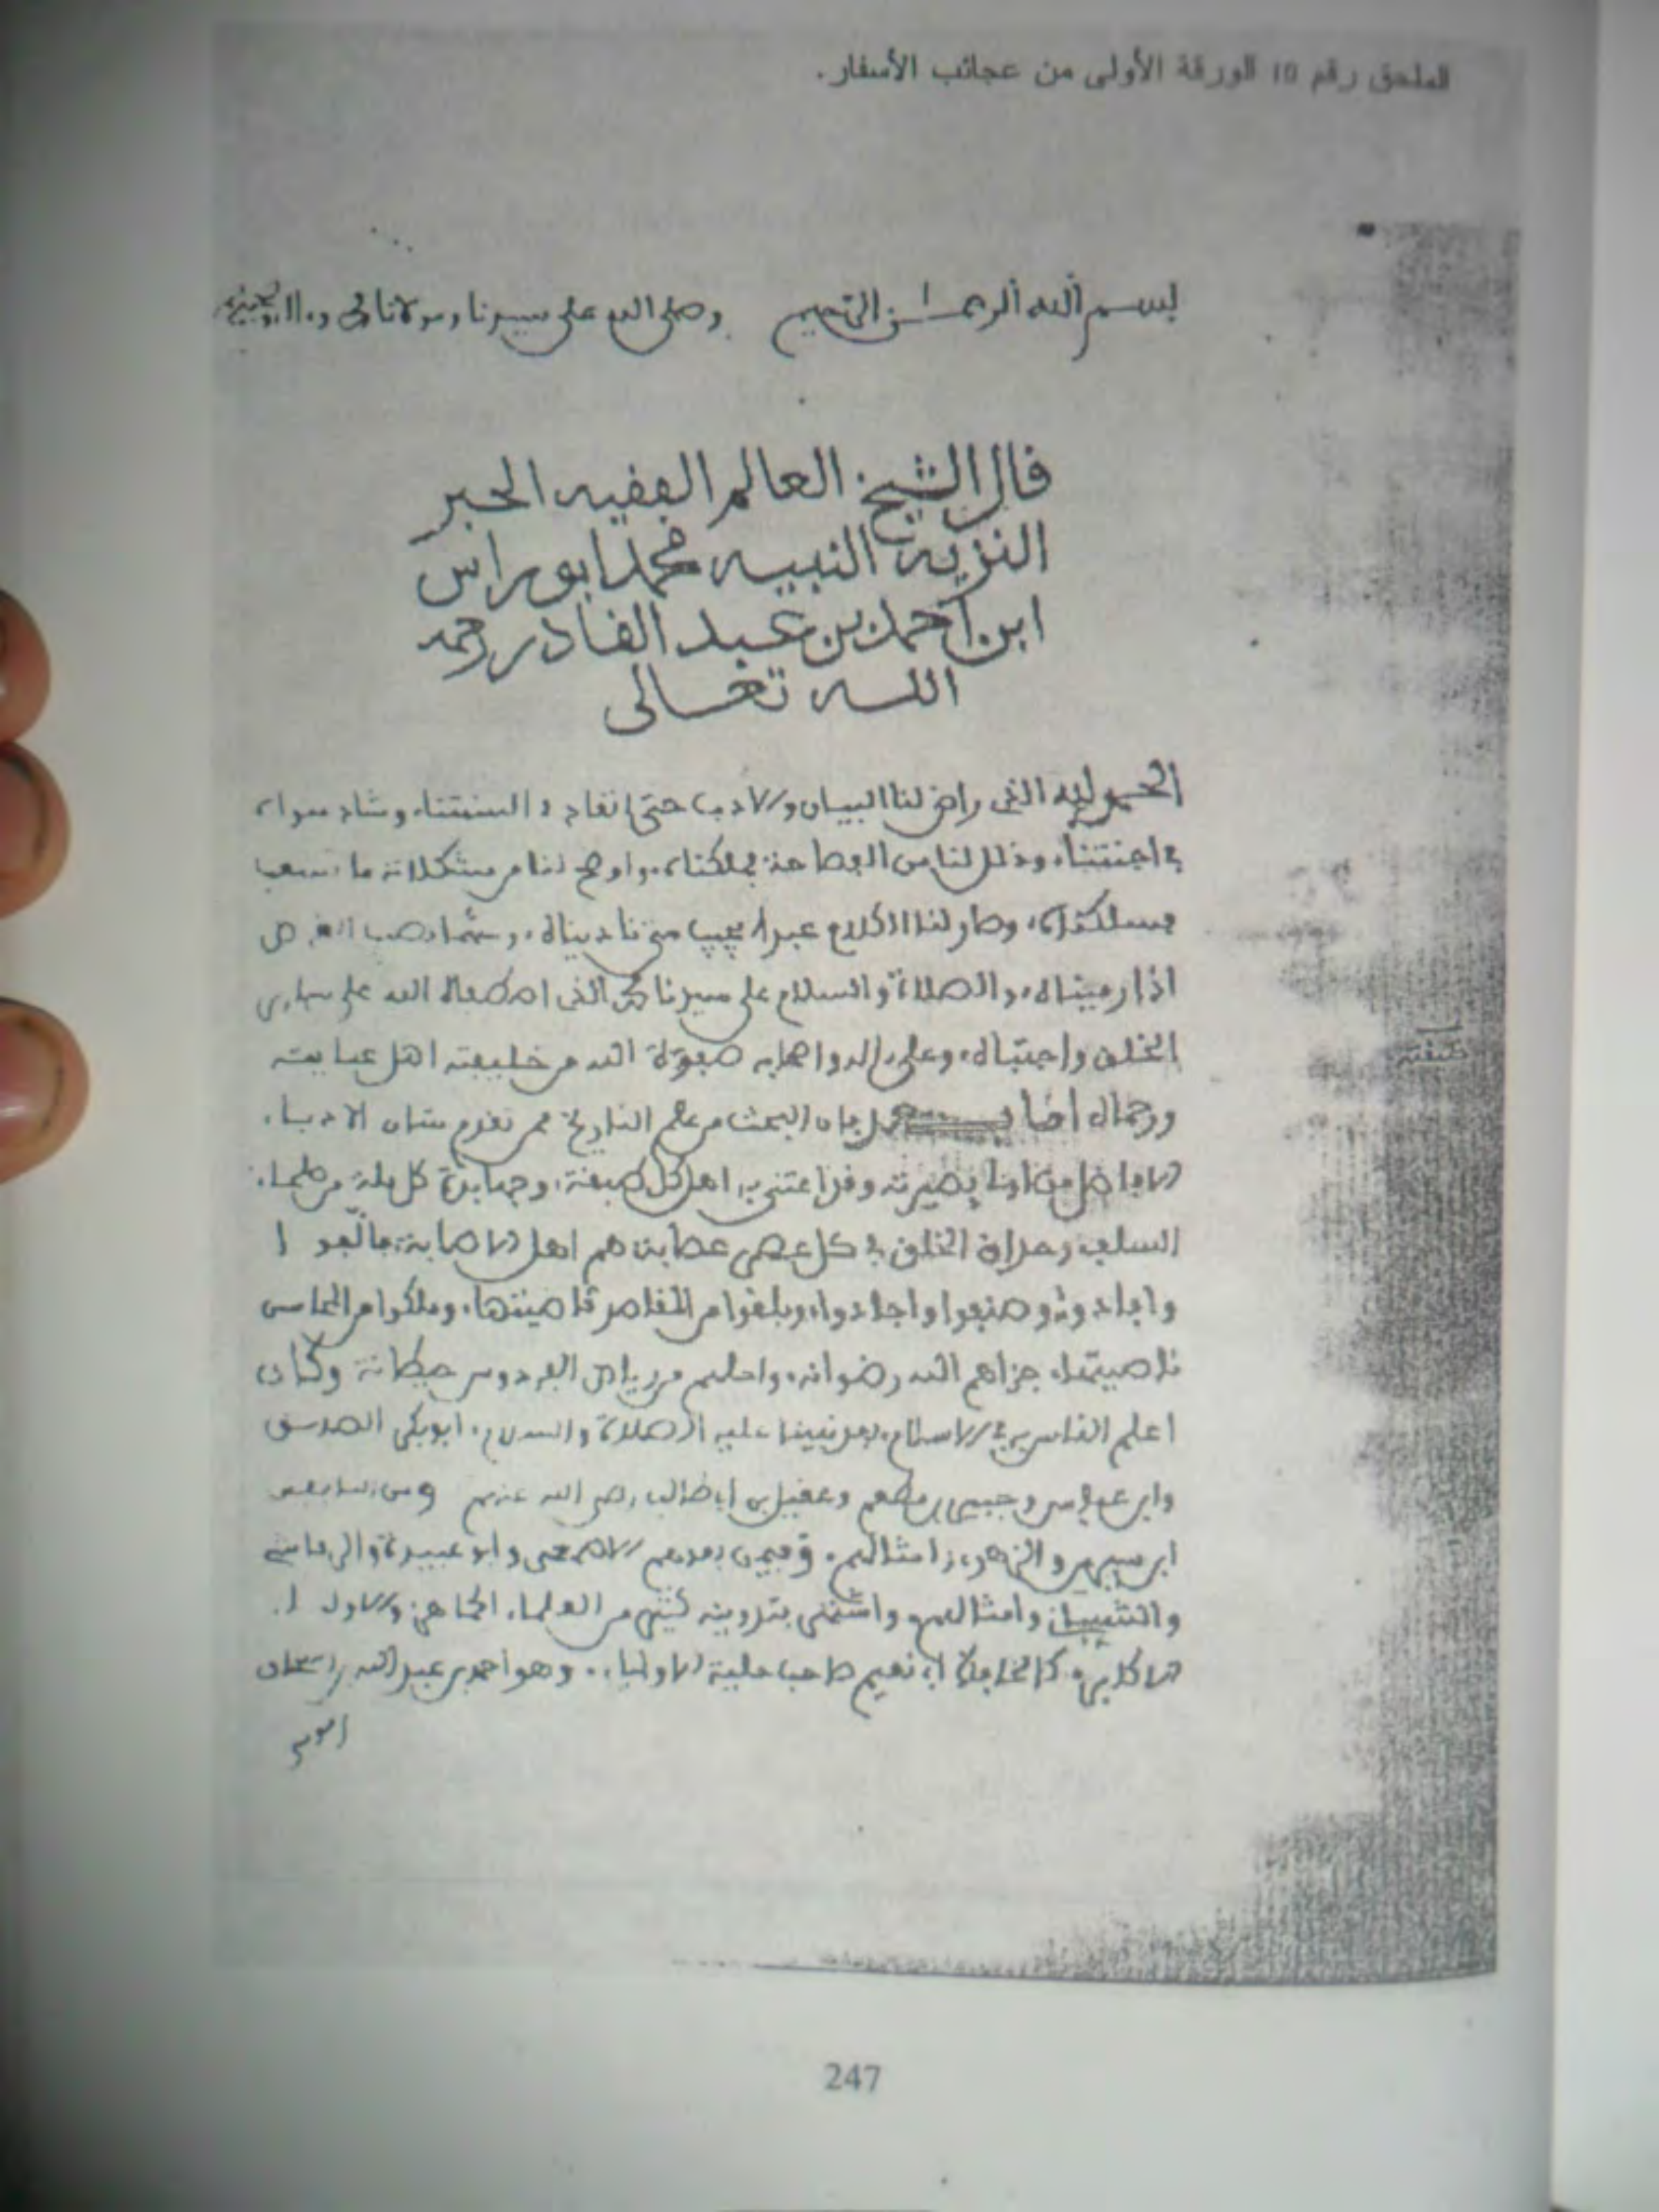 الملحق رقم 10 الورقة الأولى من عجائب الأسفار.
بسم الله الرحمن الرحيم وصلى الله على سيدنا ومولانا محمد وءاله وصحبه
قال الشيخ العالم الفقيه الحبر
النزيه النبيه محمد ابو راس
ابن احمد بن عبد القادر رحمه
الله تعالى
الحمد لله الذى راض لنا البيان والادب حتى انقاد فى السنتنا، وشاد سواء
فى اجنتنا، وذلل لنا من الفصاحة مملكتاه، واوضح لنا من مشكلاته ما صعب
مسلكتاه، وصار لنا الكلام عبدا يجيب متى ناديناه، وسهما يصيب الغرض
اذا رميناه، والصلاة والسلام على سيدنا محمد الذى اصطفاه الله على سائر
الخلق واجتباه، وعلى ءاله واصحابه صفوة الله من خليفته اهل عنايته
ورحماه اما بعد فان البحث من علم التاريخ مما تقدم شان الادباء
الافاضل من بصيرته وقد اعتنى به اهل كل طبقة، وجهابذة كل ملة من علماء
السلف وحذاق الخلف فى كل عصر عصابة هم اهل الاصابة، فالفوا
وافادوا، وصنفوا واجادوا، وبلغوا من المقاصد قاصيتها، وملكوا من المحاسن
ناصيتها، جزاهم الله رضوانه، واحلهم من رياض الفردوس وكان
اعلم الناس به فى الاسلام، بعد نبينا عليه الصلاة والسلام، ابو بكر الصديق
وابن عباس وجبير بن مطعم وعقيل بن ابى طالب رضى الله عنهم ومن التابعين
ابن سيرين والزهرى وامثالهم، وفيمن بعدهم الاصمعى وابو عبيدة والرياشى
وامثالهم، واشتغل بتدوينه كثير من العلماء، الجاهز والاول ا
الاكابر، كالحافظ ابى نعيم صاحب حلية الاولياء، وهو احمد بن عبد الله بن اسحاق